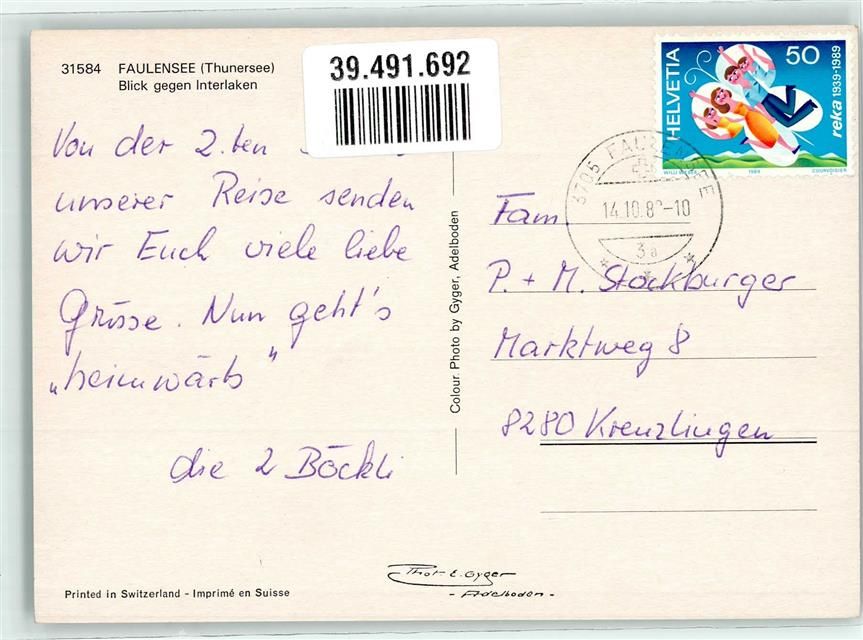 31584 FAULENSEE (Thunersee)
Blick gegen Interlaken
39.491.692
Von der 2.ten
unserer Reise senden
wir Euch viele liebe
Grüsse. Nun geht's
„heimwärts"
die 2 Böckli
Printed in Switzerland - Imprimé en Suisse
Colour. Photo by Gyger, Adelboden
Phot. E. Gyger
- Adelboden -
HELVETIA
50
reka 1939-1989
1989
COURVOISIER
3705 FAULENSEE
14.10.8 -10
3a
Fam.
P. + M. Stockburger
Marktweg 8
8280 Kreuzlingen